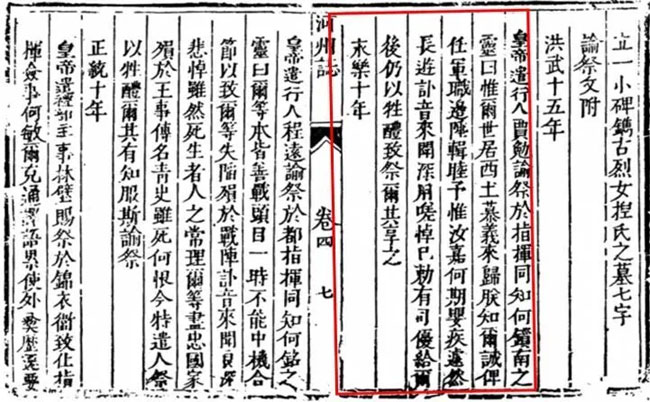 立一小碑鐫古烈女揑氏之墓七字
諭祭文附
洪武十五年
皇帝遣行人賈勉諭祭於指揮同知何鎖南之
靈曰惟爾世居西土慕義來歸朕知爾誠俾
任軍職邊陲輯睦予惟汝嘉何期嬰疾遽然
長逝訃音來聞深用嗟悼已勅有司優給爾
後仍以牲醴致祭爾其享之
永樂十年
河州誌
卷四
七
皇帝遣行人程遠諭祭於都指揮同知何銘之
靈曰爾等本皆善戰頭目一時不能中機合
節以致爾等失陷殞於戰陣訃音來聞良深
悲悼雖然死生者人之常理爾等盡忠國家
殞於王事傳名青史雖死何恨今特遣人祭
以牲醴爾其有知服斯諭祭
正統十年
皇帝遣禮部主事林璧賜祭於錦衣衞致仕指
揮僉事何敏爾克通譯語累使外夷歷